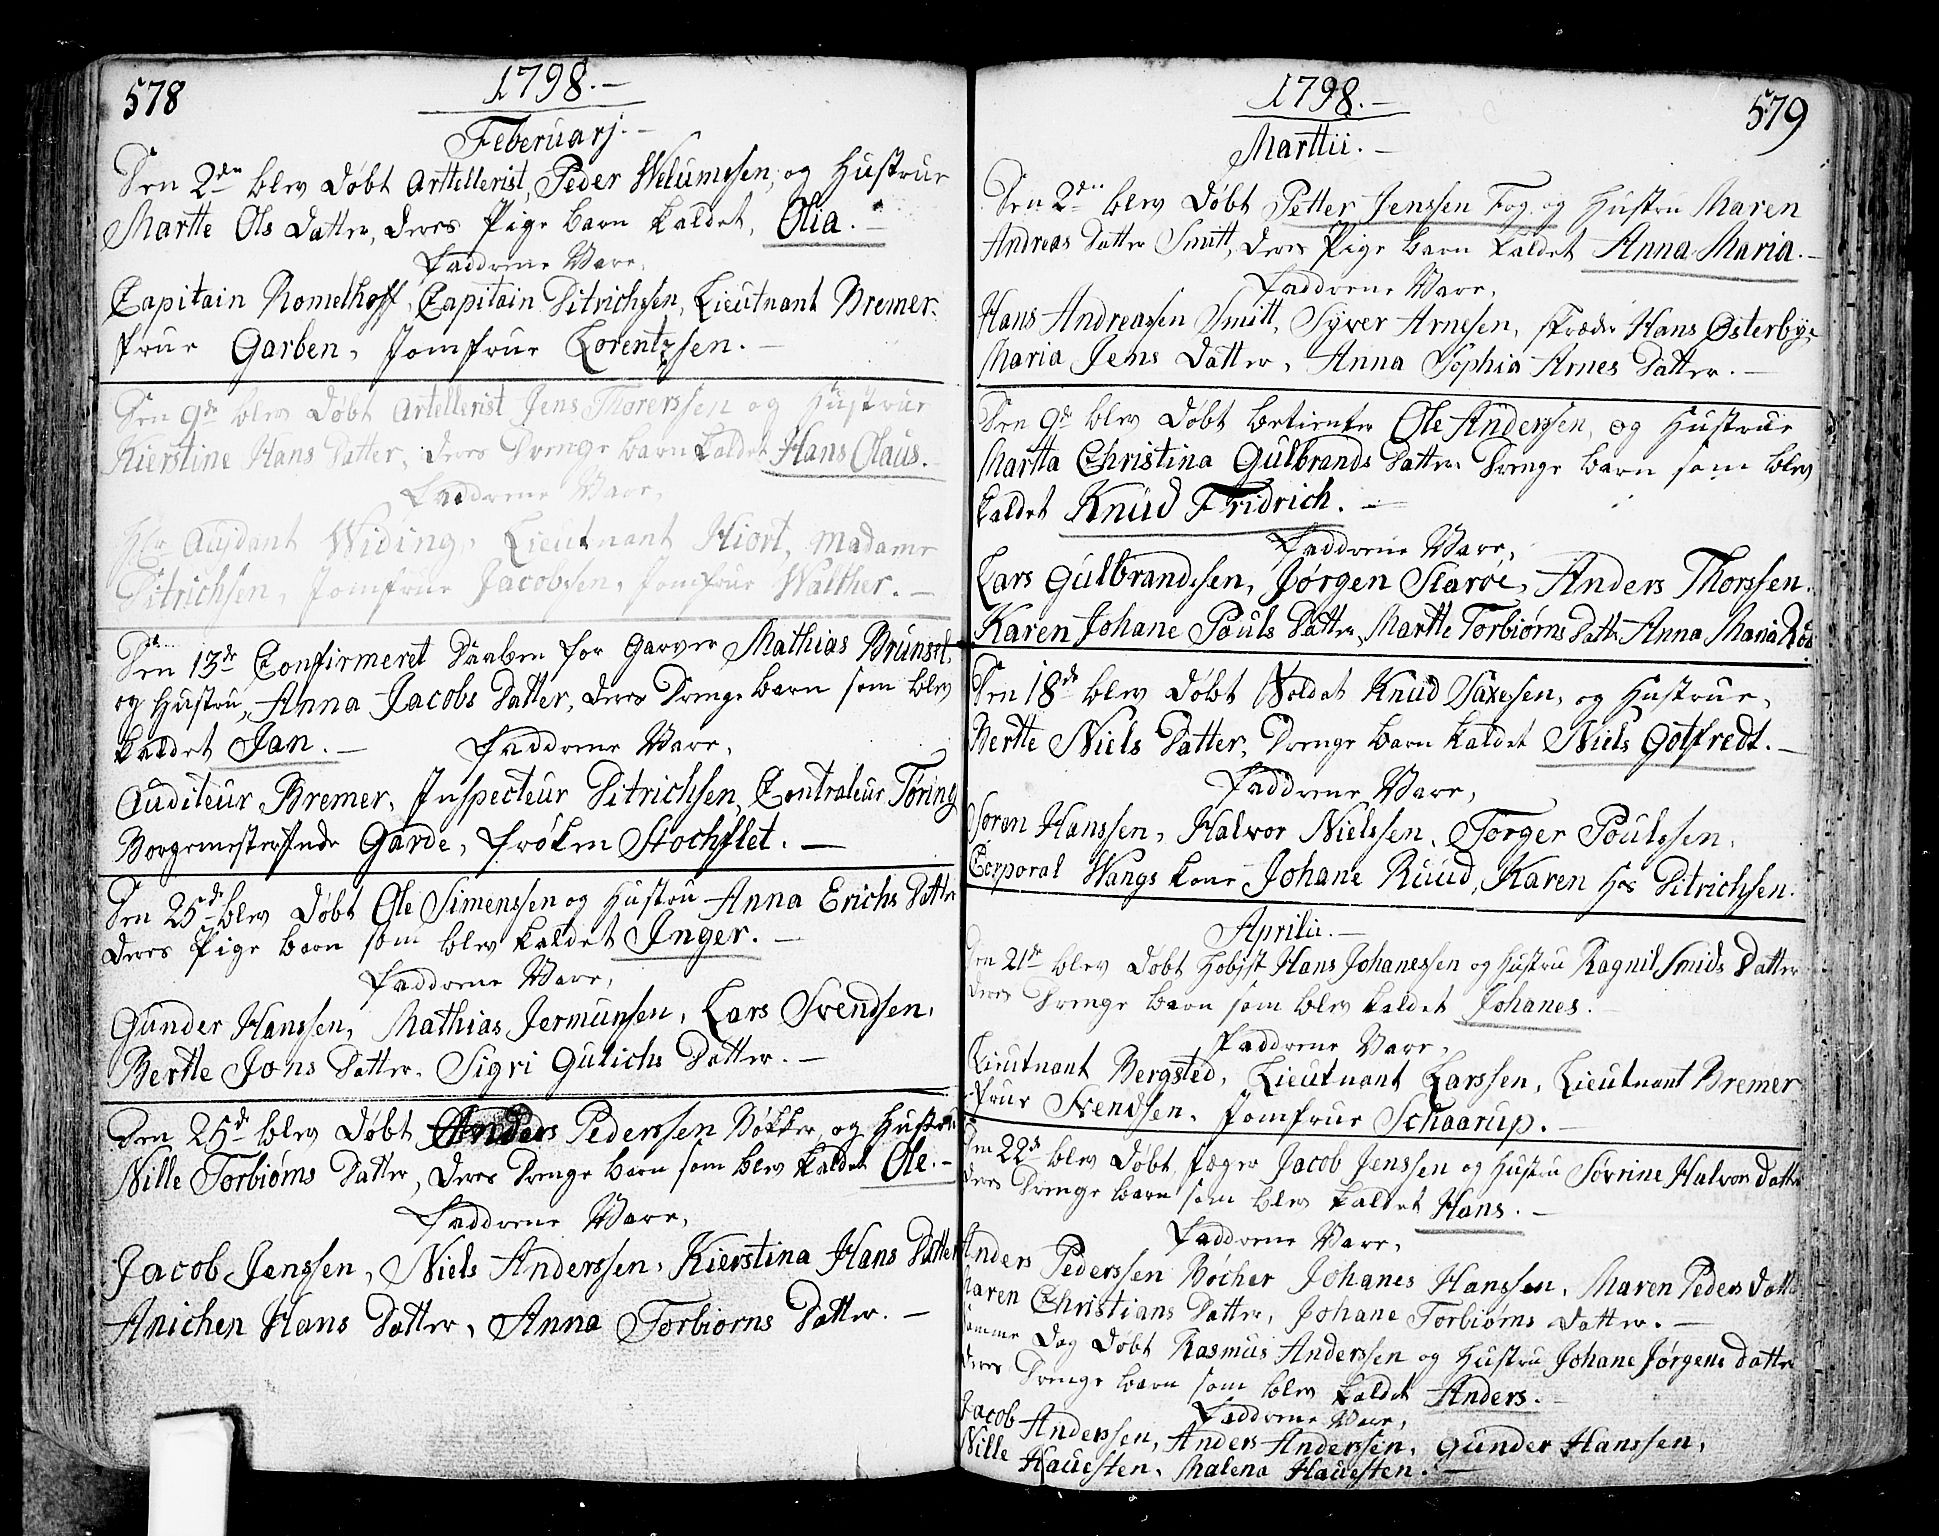 578
1798.-
Februarj.-
Den 2den blev Døbt Arttellerist, Peder Welumssen, og Hustrue
Martte Ols Datter, deres Pige barn kaldet, Olia.-
Faddrene Vare,
Capitain Romelhoff, Capitain Ditrichsen, Lieutnant Bremer.
frue Garben, Jomfrue Lorentzsen.-
Den 9de blev Døbt Artellerist Jens Thorerssen og Hustrue
Kierstine Hans Datter, deres Drenge barn kaldet Hans Claus.-
Faddrene Vare,
Hr Aujdant Widing, Lieutnant Hiort, Madame
Ditrichsen, Jomfrue Jacobssen, Jomfrue Walther.-
Den 13de Confirmeret Daaben for Garver Mathias Brunsel,
og Hustru, Anna Jacobs Datter, deres Drenge barn som blev
kaldet Jan.- Faddrene Vare,
Auditeur Bremer, Inspecteur Ditrichsen, Contraleur Tøring
Borgemesterinde Garde, frøken Stochflet.-
Den 25de blev Døbt Ole Simenssen og Hustru Anna Erichs Datter
deres Pige barn som blev kaldet Inger.-
Faddrene Vare,
Gunder Hanssen, Mathias Jermunsen, Lars Svendsen,
Bertte Jons Datter, Sigri Gulichs Datter.-
Den 25de blev Døbt Anders Pederssen Bøkker og Hustru
Nille Torbiørns Datter, deres Drenge barn som blev kaldet Ole.-
Faddrene Vare,
Jacob Jenssen, Niels Anderssen, Kierstina Hans Datter
Anichen Hans Datter, Anna Torbiørns Datter.-
579
1798.-
Marttii.-
Den 2den blev Døbt Petter Jenssen Fog. og Hustru Maren
Andreas Datter Smitt, deres Pige barn kaldet Anna Maria.-
Faddrene Vare,
Hans Andreassen Smitt, Syver Arnesen, Skræder Hans Østerbye
Maria Jens Datter, Anna Sophia Arnes Datter.-
Den 9de blev Døbt betienter Ole Anderssen, og Hustrue
Martta Christina Gulbrands Datter Drenge barn som blev
kaldet Knud Fridrich.-
Faddrene Vare,
Lars Gulbrandssen, Jørgen Skarøe, Anders Thorssen.
Karen Johane Pouls Datter, Martte Torbiørns Datter Anna Maria Roe
Den 18de blev Døbt Soldat Knud Saxesen, og Hustrue,
Bertte Niels Datter, Drenge barn kaldet Niels Gotfredt.-
Faddrene Vare,
Søren Hanssen, Halvor Nielssen, Torger Poulssen,
Corporal Wangs kone Johane Ruud, Karen Hos Ditrichsen.
Aprilii.-
Den 21de blev Døbt Hobist Hans Johanessen og Hustru Ragnil Smids Datter
deres Drenge barn som blev kaldet Johanes.
Faddrene Vare,
Lieutnant Bergsted, Lieutnant Larssen, Lieutnant Bremer
frue Svendsen, Jomfrue Schaarup.-
Den 22de blev Døbt Jæger Jacob Jenssen og Hustru Sørrine Halvors Datter
deres Drenge barn som blev kaldet Hans.-
Faddrene Vare,
Anders Pederssen Bøcher Johanes Hanssen, Maren Peders Datter
Maren Christians Datter, Johane Torbiørns Datter.-
Samme Dag Døbt Rasmus Anderssen og Hustru Johane Jørgens Datter
deres Drenge barn som blev kaldet Anders.-
Faddrene Vare,
Jacob Anderssen, Anders Anderssen, Gunder Hanssen,
Nille Hauesten, Malena Hauesten.-